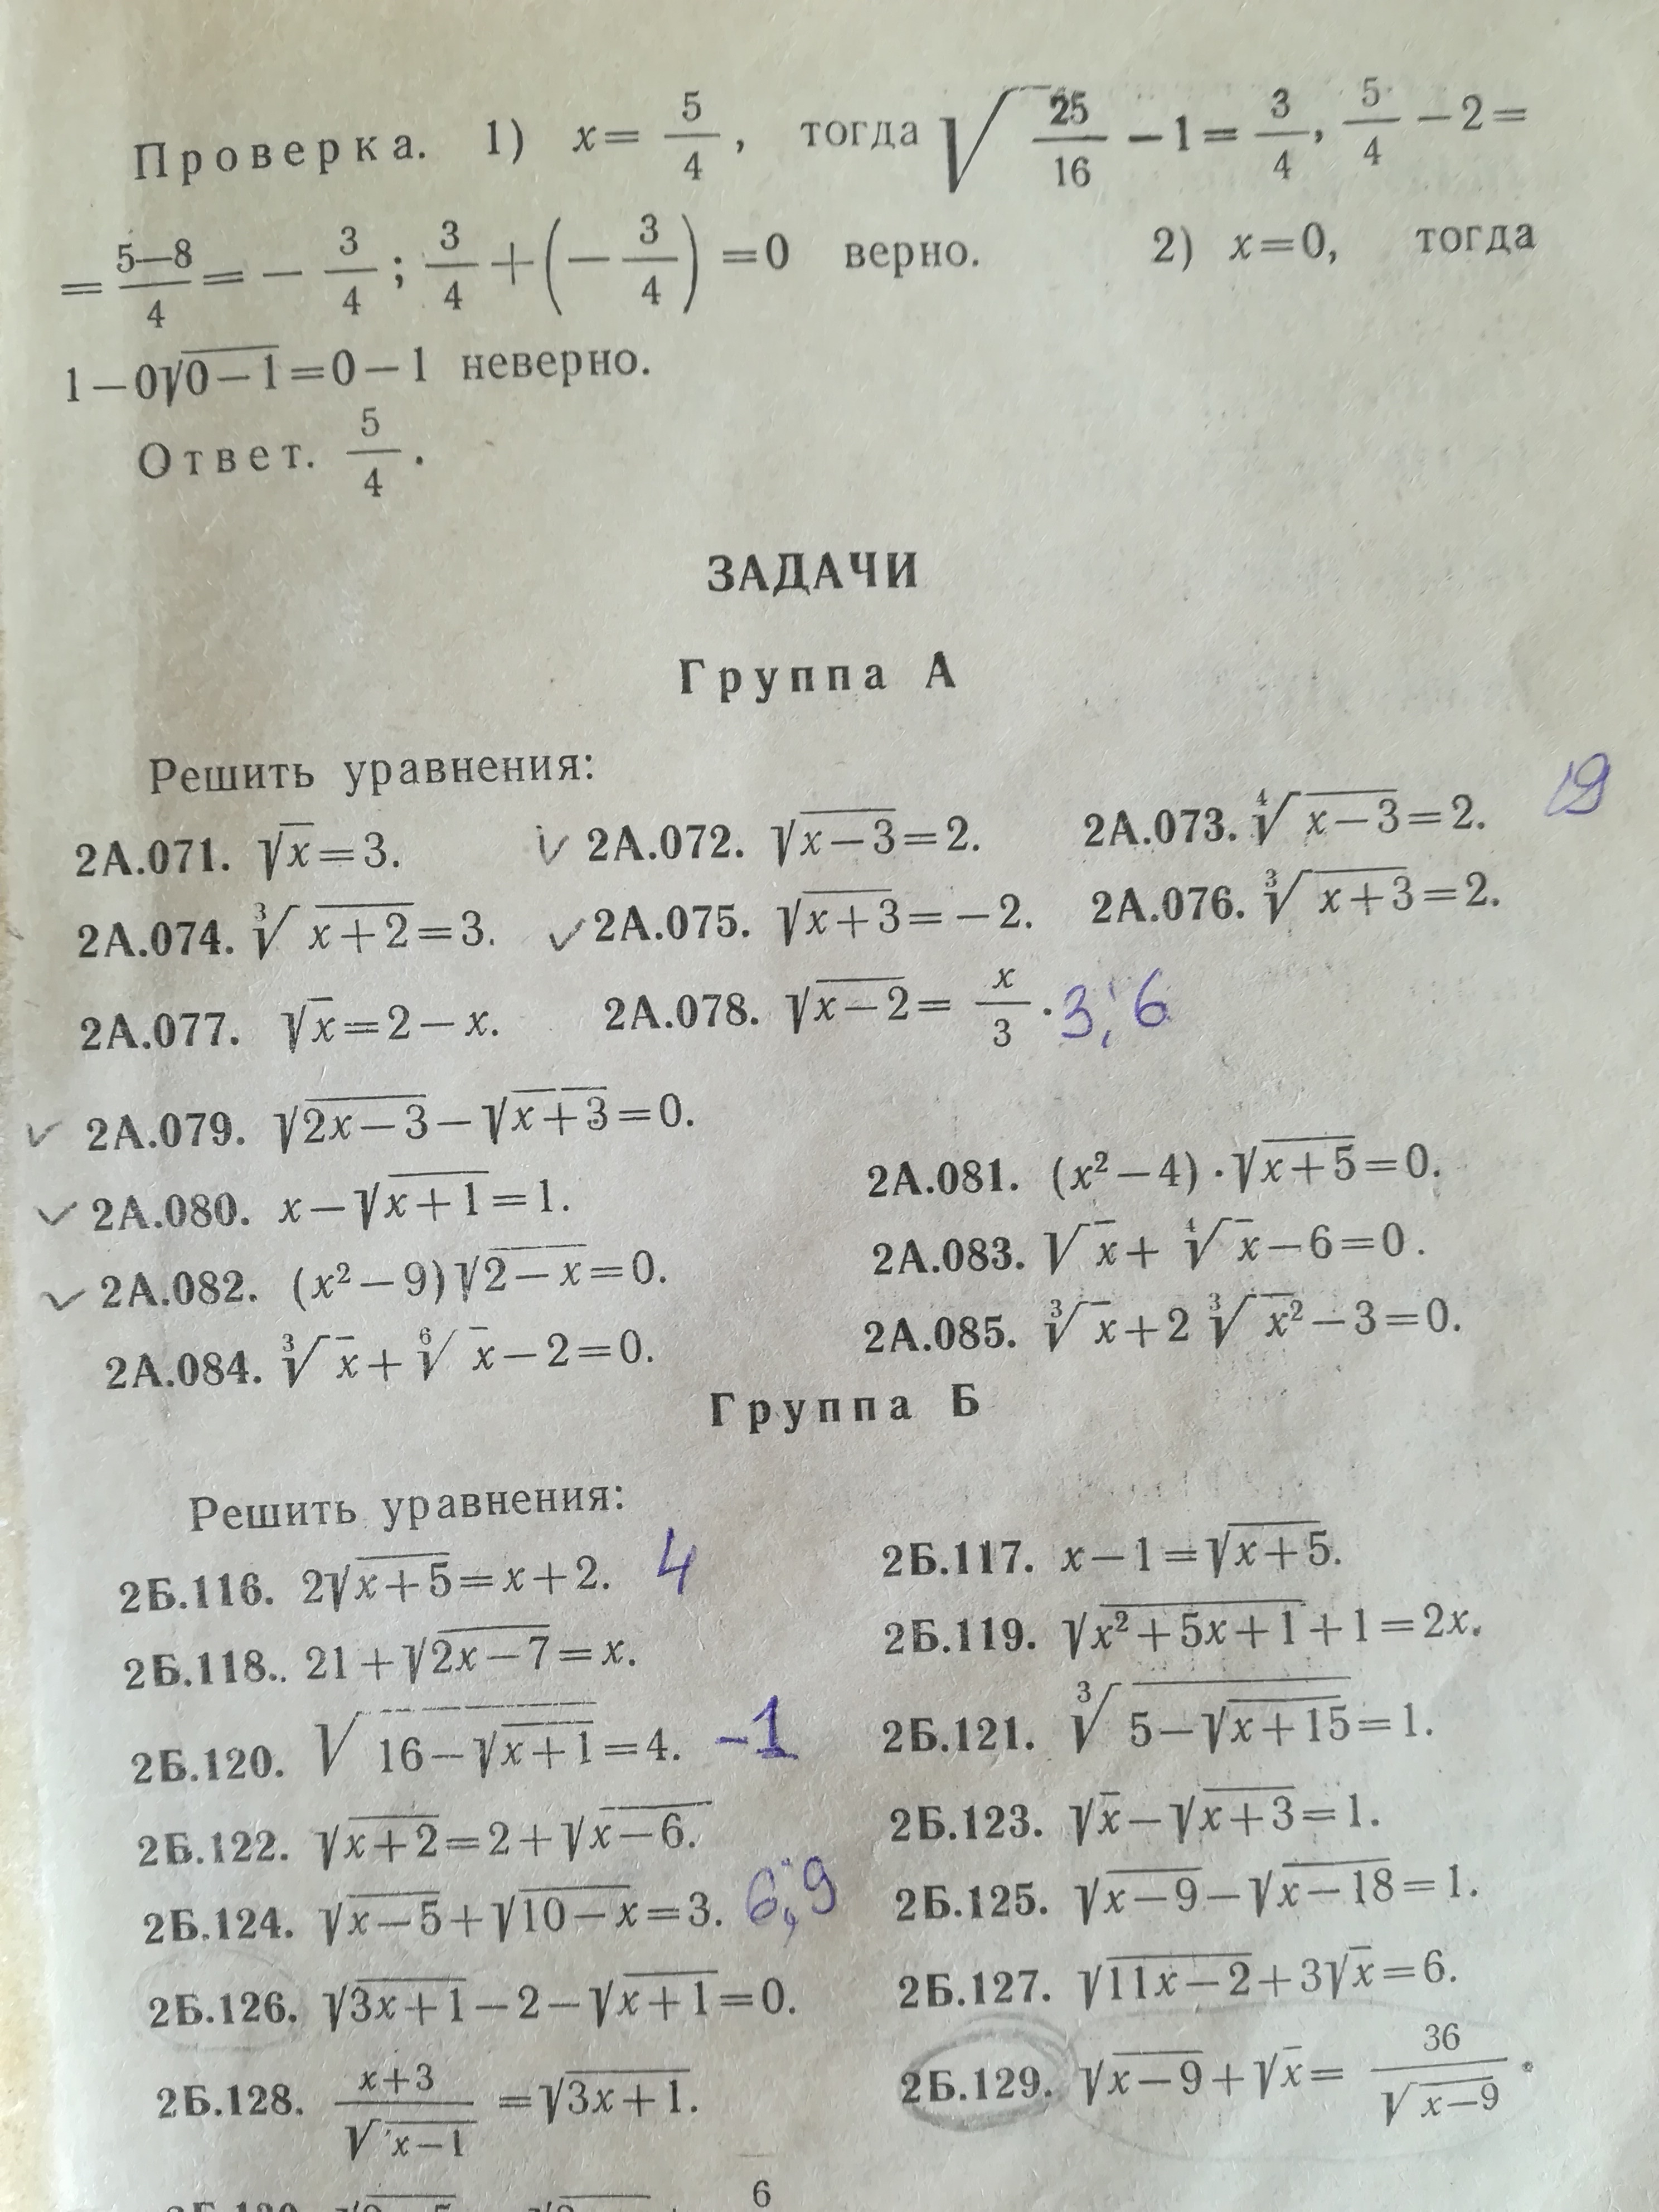 Проверка. 1) x = 5/4, тогда √(25/16 − 1) = 3/4, 5/4 − 2 =
= (5−8)/4 = − 3/4; 3/4 + (− 3/4) = 0 верно. 2) x=0, тогда
1−0√(0−1)=0−1 неверно.
Ответ. 5/4.
ЗАДАЧИ
Группа А
Решить уравнения:
2А.071. √x=3. √ 2А.072. √(x−3)=2. 2А.073. ⁴√(x−3)=2. 19
2А.074. ³√(x+2)=3. √ 2А.075. √(x+3)=−2. 2А.076. ³√(x+3)=2.
2А.077. √x=2−x. 2А.078. √(x−2)= x/3. 3; 6
√ 2А.079. √(2x−3)−√(x+3)=0.
√ 2А.080. x−√(x+1)=1. 2А.081. (x²−4)·√(x+5)=0.
√ 2А.082. (x²−9)√(2−x)=0. 2А.083. √x+ ⁴√x−6=0.
2А.084. ³√x+ ⁶√x−2=0. 2А.085. ³√x+2 ³√x²−3=0.
Группа Б
Решить уравнения:
2Б.116. 2√(x+5)=x+2. 4 2Б.117. x−1=√(x+5).
2Б.118.. 21+√(2x−7)=x. 2Б.119. √(x²+5x+1)+1=2x.
2Б.120. √(16−√(x+1))=4. −1 2Б.121. ³√(5−√(x+15))=1.
2Б.122. √(x+2)=2+√(x−6). 2Б.123. √x−√(x+3)=1.
2Б.124. √(x−5)+√(10−x)=3. 6; 9 2Б.125. √(x−9)−√(x−18)=1.
2Б.126. √(3x+1)−2−√(x+1)=0. 2Б.127. √(11x−2)+3√x=6.
2Б.128. (x+3)/√(x−1) =√(3x+1). 2Б.129. √(x−9)+√x= 36/√(x−9).
6